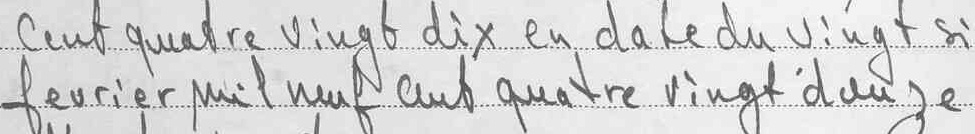 Cent quatre vingt dix en date du vingt si
fevrier mil neuf cent quatre vingt douze